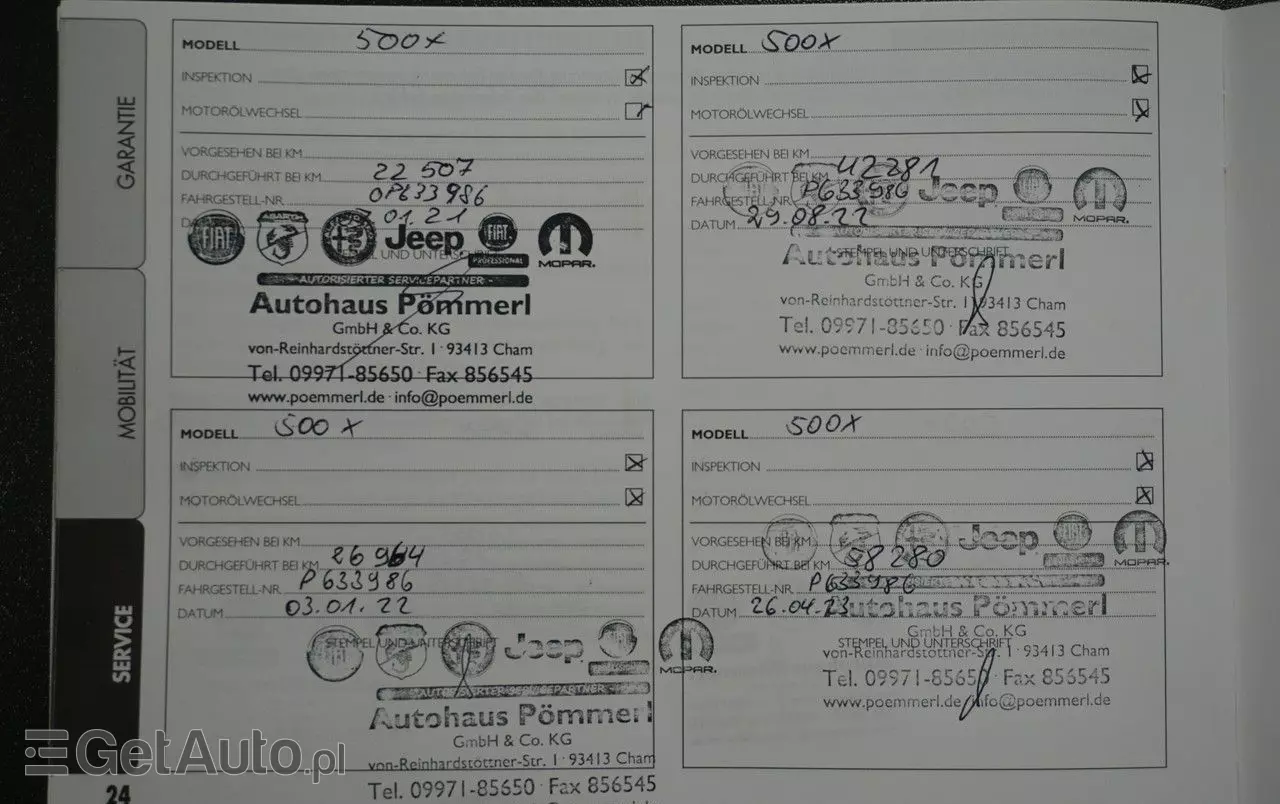 GARANTIE
MOBILITÄT
SERVICE
24
MODELL 500X
INSPEKTION
MOTORÖLWECHSEL
VORGESEHEN BEI KM
DURCHGEFÜHRT BEI KM 22 507
FAHRGESTELL-NR. 0P633986
01.21
FIAT ABARTH Jeep FIAT PROFESSIONAL MOPAR.
AUTORISIERTER SERVICEPARTNER
Autohaus Pömmerl
GmbH & Co. KG
von-Reinhardstöttner-Str. 1 · 93413 Cham
Tel. 09971-85650 · Fax 856545
www.poemmerl.de · info@poemmerl.de
MODELL 500X
INSPEKTION
MOTORÖLWECHSEL
VORGESEHEN BEI KM
DURCHGEFÜHRT BEI KM 42281
FAHRGESTELL-NR. P633986
DATUM 29.08.22
Jeep MOPAR.
STEMPEL UND UNTERSCHRIFT
Autohaus Pömmerl
GmbH & Co. KG
von-Reinhardstöttner-Str. 1 93413 Cham
Tel. 09971-85650 · Fax 856545
www.poemmerl.de · info@poemmerl.de
MODELL 500X
INSPEKTION
MOTORÖLWECHSEL
VORGESEHEN BEI KM
DURCHGEFÜHRT BEI KM 26964
FAHRGESTELL-NR. P633986
DATUM 03.01.22
STEMPEL UND UNTERSCHRIFT
Jeep MOPAR.
AUTORISIERTER SERVICEPARTNER
Autohaus Pömmerl
GmbH & Co. KG
von-Reinhardstöttner-Str. 1 · 93413 Cham
Tel. 09971-85650 · Fax 856545
MODELL 500X
INSPEKTION
MOTORÖLWECHSEL
VORGESEHEN BEI KM
Jeep MOPAR.
DURCHGEFÜHRT BEI KM 58280
FAHRGESTELL-NR. P633986
DATUM 26.04.23
Autohaus Pömmerl
GmbH & Co. KG
STEMPEL UND UNTERSCHRIFT
von-Reinhardstöttner-Str. 1 · 93413 Cham
Tel. 09971-85650 · Fax 856545
www.poemmerl.de info@poemmerl.de
GetAuto.pl